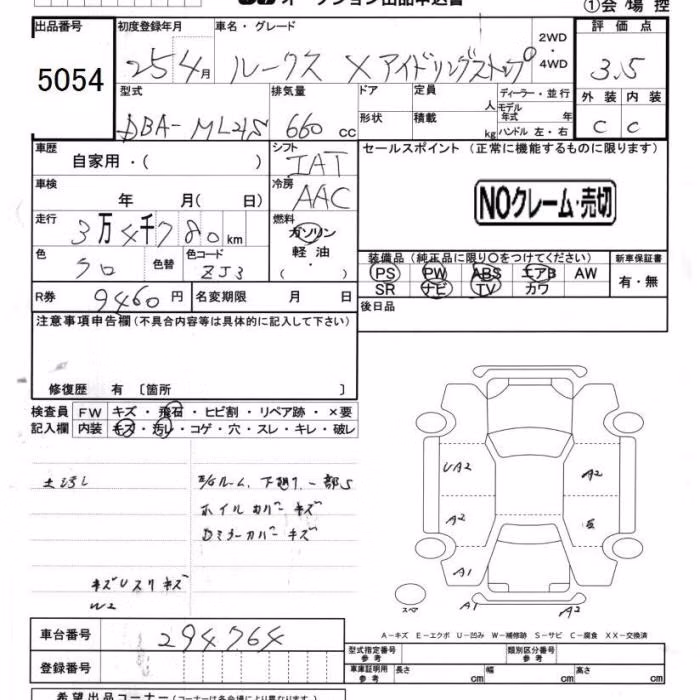 ①会場控
出品番号
5054
初度登録年月
25 4月
車名・グレード
ルークス X アイドリングストップ
2WD
・
4WD
評価点
3.5
外装 内装
C C
型式
DBA-ML21S
排気量
660 cc
ドア
定員
人
形状
積載
kg
ディーラー・並行
モデル
年式 年
ハンドル 左・右
車歴
自家用・( )
シフト
IAT
セールスポイント (正常に機能するものに限ります)
NOクレーム・売切
車検
年 月( 日)
冷房
AAC
走行
3万4千780km
燃料
ガソリン
軽油
・
( )
色
クロ
色替
色コード
ZJ3
装備品 (純正品に限り○をつけてください)
PS PW ABS エアB AW
SR ナビ TV カワ
新車保証書
有・無
R券 9460円
名変期限 月 日
後日品
注意事項申告欄 (不具合内容等は具体的に記入して下さい)
修復歴 有 〔箇所 〕
検査員
記入欄
FW キズ・飛石・ヒビ割・リペア跡・×要
内装 キズ・汚レ・コゲ・穴・スレ・キレ・破レ
ホイルカバーキズ
Dミラーカバーキズ
W2
UA2
A2
A2
A1
A1
A2
スペア
A-キズ E-エクボ U-凹み W-補修跡 S-サビ C-腐食 XX-交換済
車台番号 294764
登録番号
型式指定番号
参考
類別区分番号
参考
車庫証明用
参考
長さ cm 幅 cm 高さ cm
希望出品コーナー (コーナーは各会場により異なります)